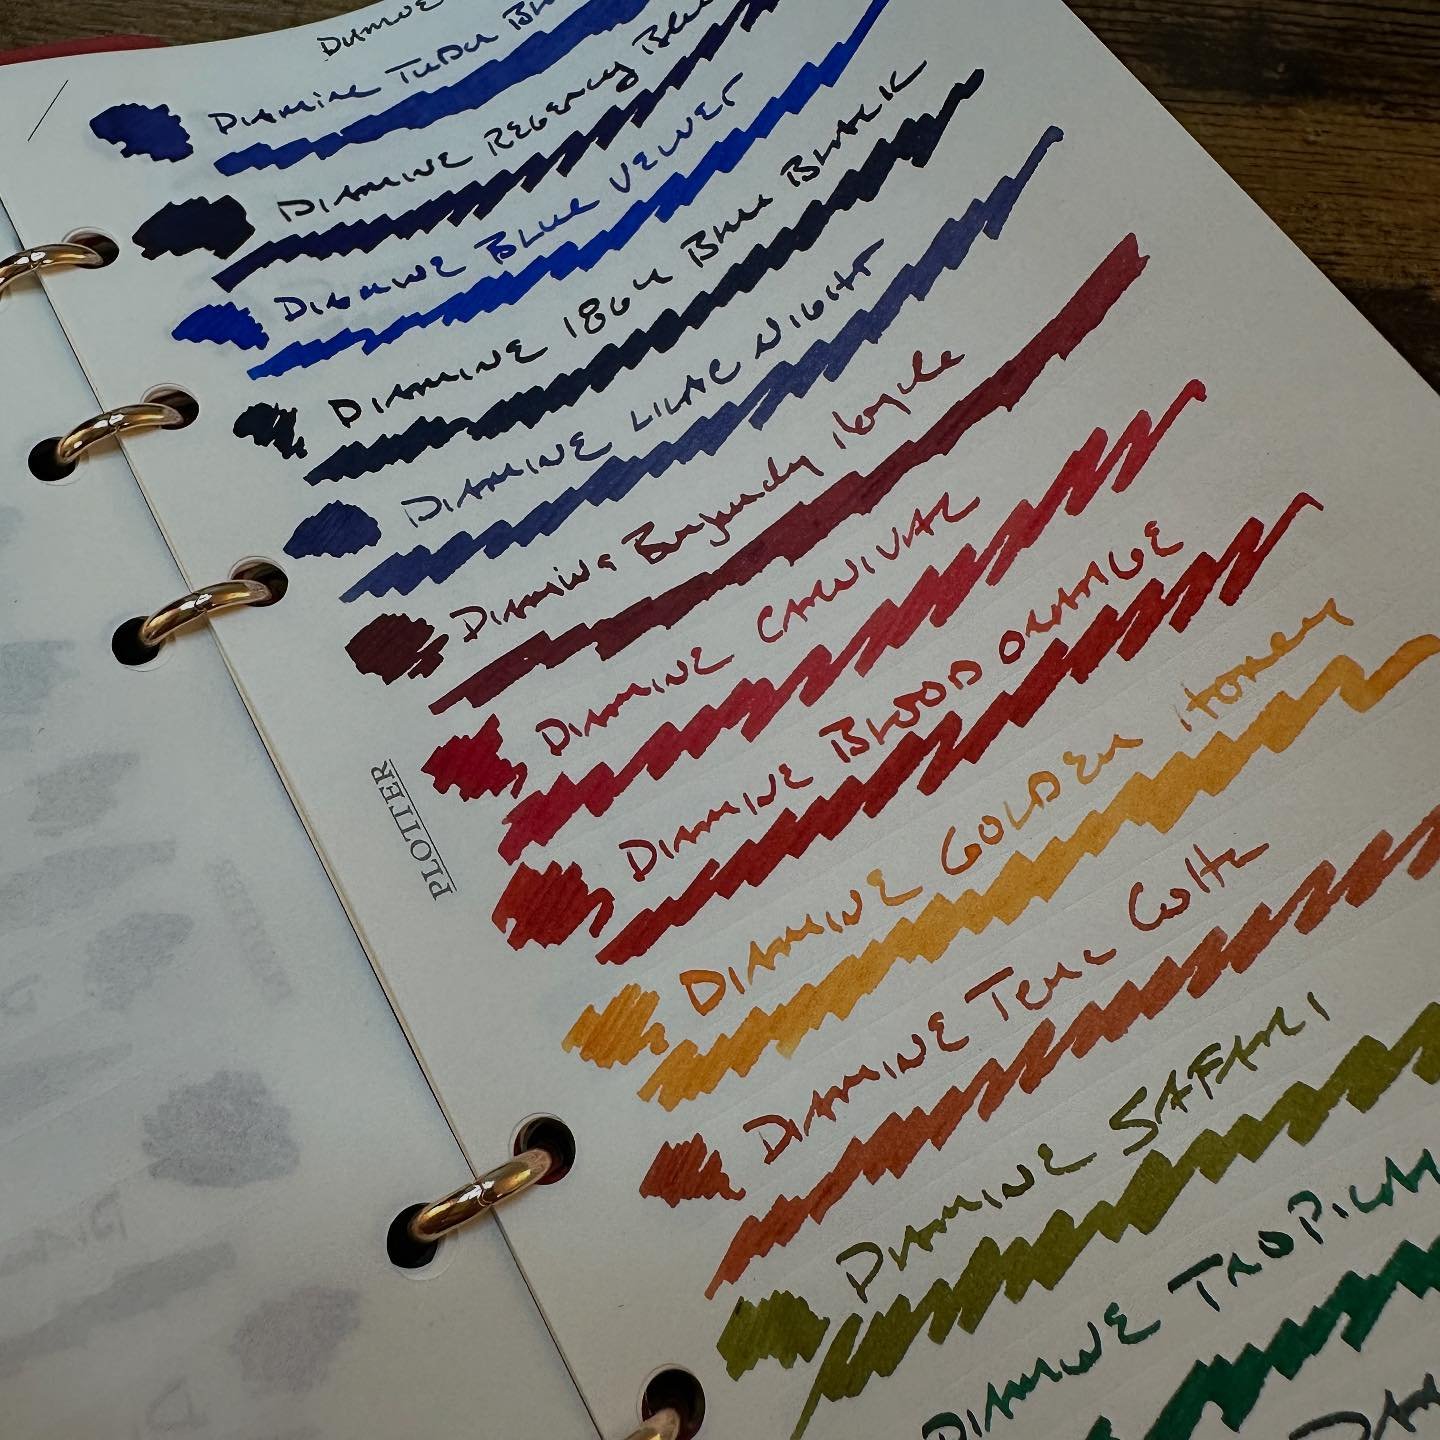 Diamine Tudor Blue
DIAMINE REGENCY Blue
DIAMINE BLUE VELVET
DIAMINE 1864 BLUE BLACK
DIAMINE LILAC NIGHT
Diamine Burgundy Royale
DIAMINE CARNIVAL
DIAMINE BLOOD ORANGE
DIAMINE GOLDEN Honey
DIAMINE Terra Cotta
DIAMINE SAFARI
DIAMINE TROPICA
PLOTTER